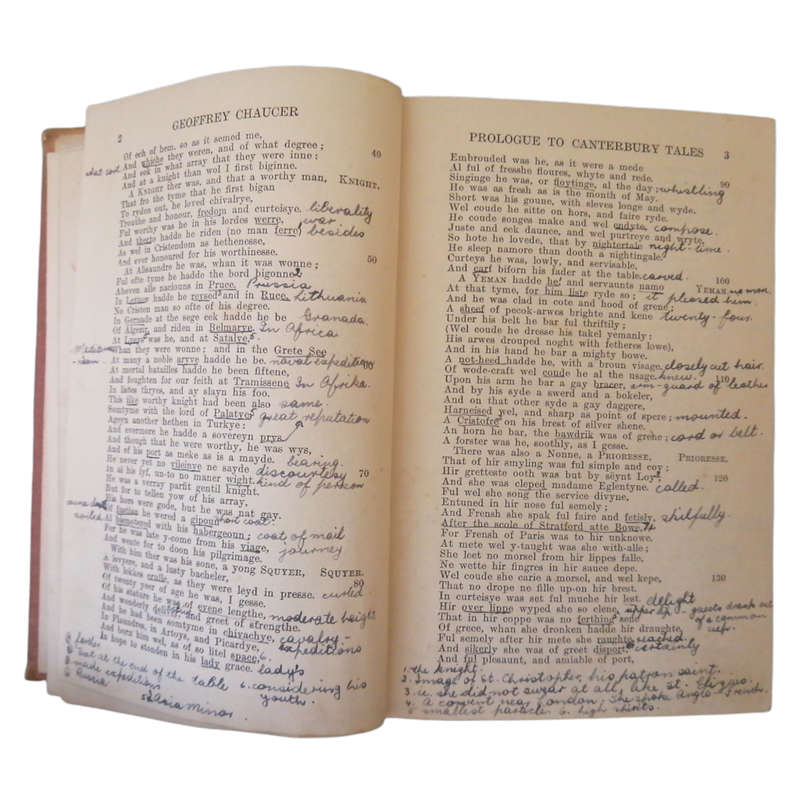 2 GEOFFREY CHAUCER
Of ech of hem, so as it semed me,
And whiche they weren, and of what degree ; 40
what sort And eek in what array that they were inne :
And at a knight than wol I first biginne.
A KNIGHT ther was, and that a worthy man, KNIGHT.
That fro the tyme that he first bigan
To ryden out, he loved chivalrye,
Trouthe and honour, fredom and curteisye. liberality
Ful worthy was he in his lordes werre, war
And therto hadde he riden (no man ferre) besides
As wel in Cristendom as hethenesse,
And ever honoured for his worthinesse. 50
At Alisaundre he was, whan it was wonne ;
Ful ofte tyme he hadde the bord bigonne 2
Aboven alle naciouns in Pruce. Prussia
In Lettow hadde he reysed 3 and in Ruce, Lithuania
No Cristen man so ofte of his degree.
In Gernade at the sege eek hadde he be Granada.
Of Algezir, and riden in Belmarye. In Africa
At Lyeys was he, and at Satalye, 5
Whan they were wonne ; and in the Grete See
At many a noble aryve hadde he be. naval expedition
At mortal batailles hadde he been fiftene,
And foughten for our feith at Tramissene In Afrika.
In listes thryes, and ay slayn his foo.
This ilke worthy knight had been also same.
Somtyme with the lord of Palatye, great reputation
Ageyn another hethen in Turkye :
And evermore he hadde a sovereyn prys.
And though that he were worthy, he was wys,
And of his port as meke as is a mayde. bearing.
He never yet no vileinye ne sayde discourtesy 70
In al his lyf, un-to no maner wight. kind of person
He was a verray parfit gentil knight.
But for to tellen yow of his array,
His hors were gode, but he was nat gay.
Of fustian he wered a gipoun short coat.
Al bismotered with his habergeoun ; coat of mail
For he was late y-come from his viage, journey
And wente for to doon his pilgrimage.
With him ther was his sone, a yong SQUYER, SQUYER.
A lovyere, and a lusty bacheler, 80
With lokkes crulle, as they were leyd in presse. curled
Of twenty yeer of age he was, I gesse.
Of his stature he was of evene lengthe, moderate height
And wonderly deliver, and greet of strengthe.
And he had been somtyme in chivachye, cavalry-
In Flaundres, in Artoys, and Picardye, expeditions
And born him wel, as of so litel space, 6.
In hope to stonden in his lady grace. lady's
1 further
2 Sat at the end of the table 6. considering his
3 made expeditions youth.
4 Russia
5 Asia Minor
PROLOGUE TO CANTERBURY TALES 3
Embrouded was he, as it were a mede
Al ful of fresshe floures, whyte and rede. 90
Singinge he was, or floytinge, al the day ; whistling
He was as fresh as is the month of May.
Short was his goune, with sleves longe and wyde.
Wel coude he sitte on hors, and faire ryde.
He coude songes make and wel endyte, compose.
Juste and eek daunce, and wel purtreye and wryte.
So hote he lovede, that by nightertale night-time.
He sleep namore than dooth a nightingale.
Curteys he was, lowly, and servisable,
And carf biforn his fader at the table. carved. 100
A YEMAN hadde he 1 and servaunts namo YEMAN. no more
At that tyme, for him liste ryde so ; it pleased him.
And he was clad in cote and hood of grene ;
A sheef of pecok-arwes brighte and kene twenty-four.
Under his belt he bar ful thriftily ;
(Wel coude he dresse his takel yemanly :
His arwes drouped noght with fetheres lowe),
And in his hand he bar a mighty bowe.
A not-heed hadde he, with a broun visage. closely cut hair.
Of wode-craft wel coude he al the usage. knew. 110
Upon his arm he bar a gay bracer, arm-guard of leather
And by his syde a swerd and a bokeler,
And on that other syde a gay daggere,
Harneised wel, and sharp as point of spere ; mounted.
A Cristofre 2 on his brest of silver shene.
An horn he bar, the bawdrik was of grene ; cord or belt.
A forster was he, soothly, as I gesse.
There was also a Nonne, a PRIORESSE, PRIORESSE.
That of hir smyling was ful simple and coy ;
Hir gretteste ooth was but by sëynt Loy ; 3 120
And she was cleped madame Eglentyne. called.
Ful wel she song the service divyne,
Entuned in hir nose ful semely ;
And Frensh she spak ful faire and fetisly, skilfully.
After the scole of Stratford atte Bowe, 4
For Frensh of Paris was to hir unknowe.
At mete wel y-taught was she with-alle ;
She leet no morsel from hir lippes falle,
Ne wette hir fingres in hir sauce depe.
Wel coude she carie a morsel, and wel kepe, 130
That no drope ne fille up-on hir brest.
In curteisye was set ful muche hir lest. delight
Hir over lippe wyped she so clene, upper lip guests drank out
That in hir coppe was no ferthing 5 sene of a common
Of grece, whan she dronken hadde hir draughte, cup.
Ful semely after hir mete she raughte, reached.
And sikerly she was of greet disport, certainly
And ful plesaunt, and amiable of port,
1. the knight.
2. Image of St. Christopher, his patron saint.
3. i.e. she did not swear at all, like St. Eligius.
4. A convent near London ; She spoke Anglo-French.
5 smallest particle. 6. high spirits.